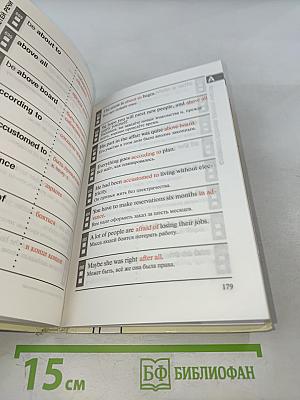 ЧАСТЕЙ РЕЧИ
be about to
above all
be above board
according to
accustomed to
заранее
бояться
в конце концов
A
The movie is about to begin.
you will meet new people, and above all
His part in the affair was quite above board.
Его участие в этом деле было вполне законным.
Everything goes according to plan.
Всё идёт, как планировалось.
He had been accustomed to living without elec-
tricity.
Он привык жить без электричества.
You have to make reservations six months in ad-
vance.
Вам надо оформить заказ за шесть месяцев.
A lot of people are afraid of losing their jobs.
Масса людей боится потерять работу.
Maybe she was right after all.
Может быть, всё же она была права.
179
15 см
БФ БИБЛИОФАН